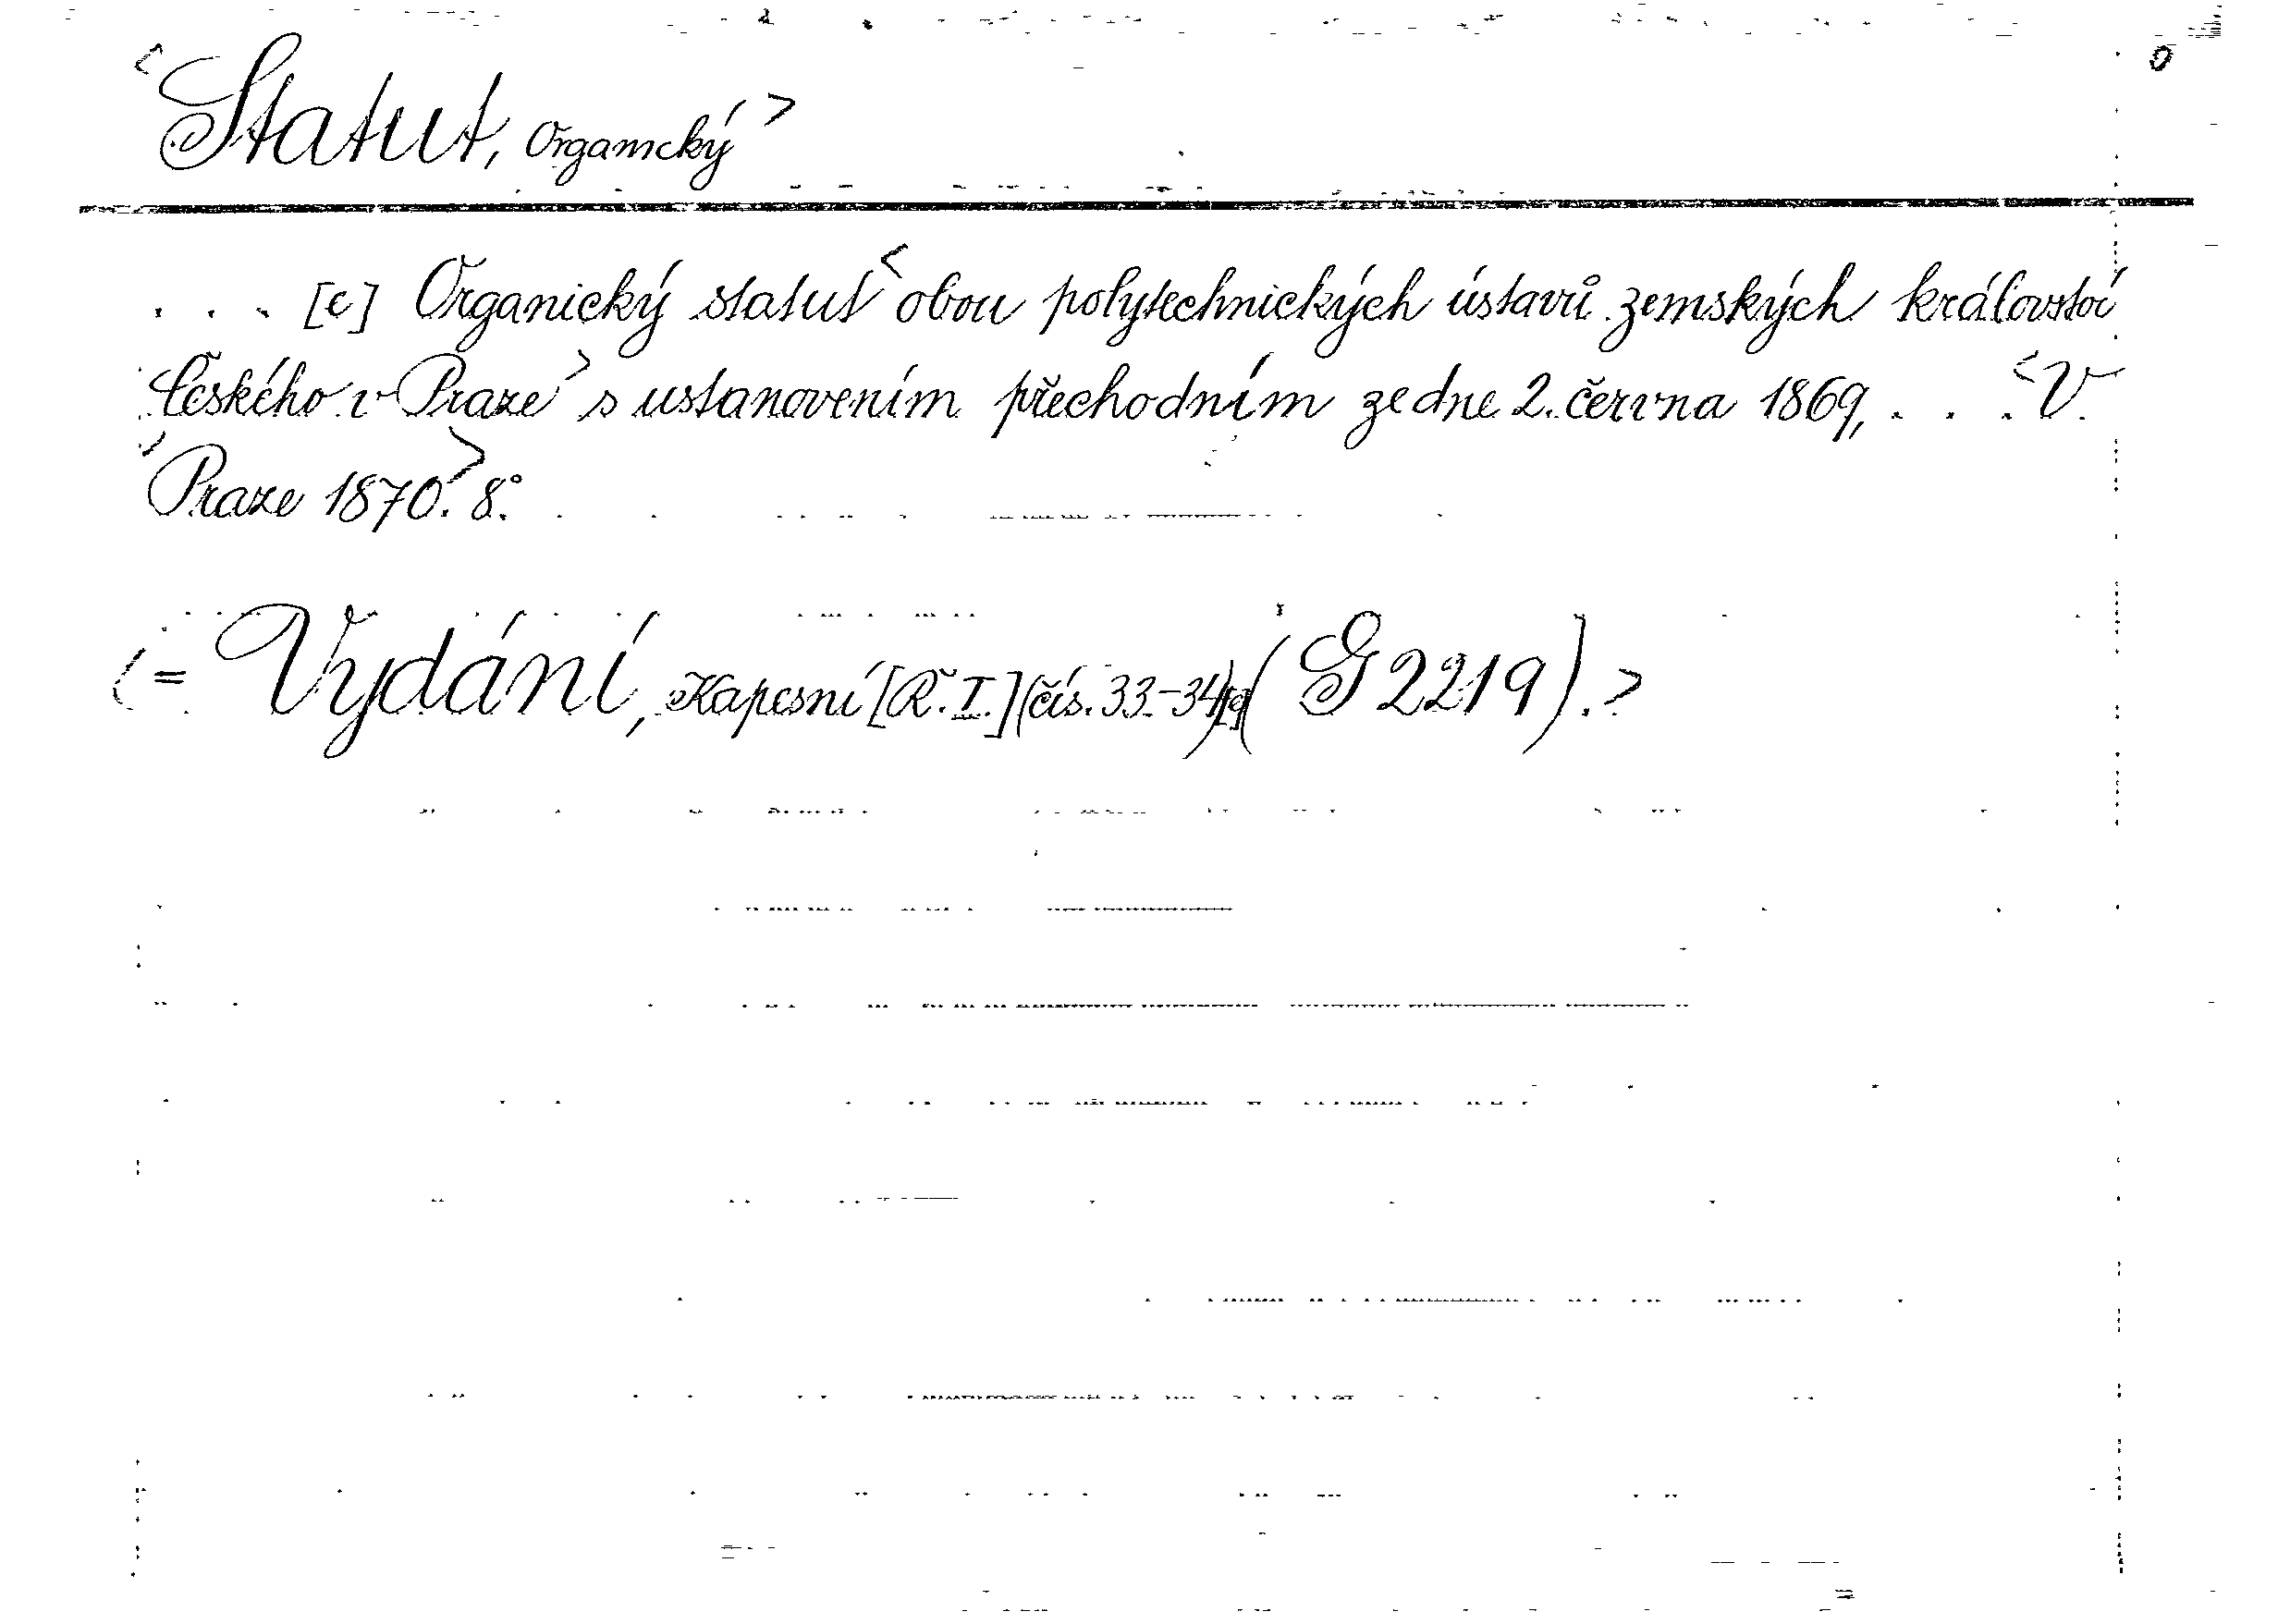 <Statut, Organický>
0
. . . [c] Organický statut <obou polytechnických ústavů zemských království
Českého v Praze> s ustanovením přechodním ze dne 2. června 1869, . . . <V
Praze 1870.> 8.°
<= Vydání, Kapesní [Ř. I.] (čís. 33-34)[c] (G 2219).>